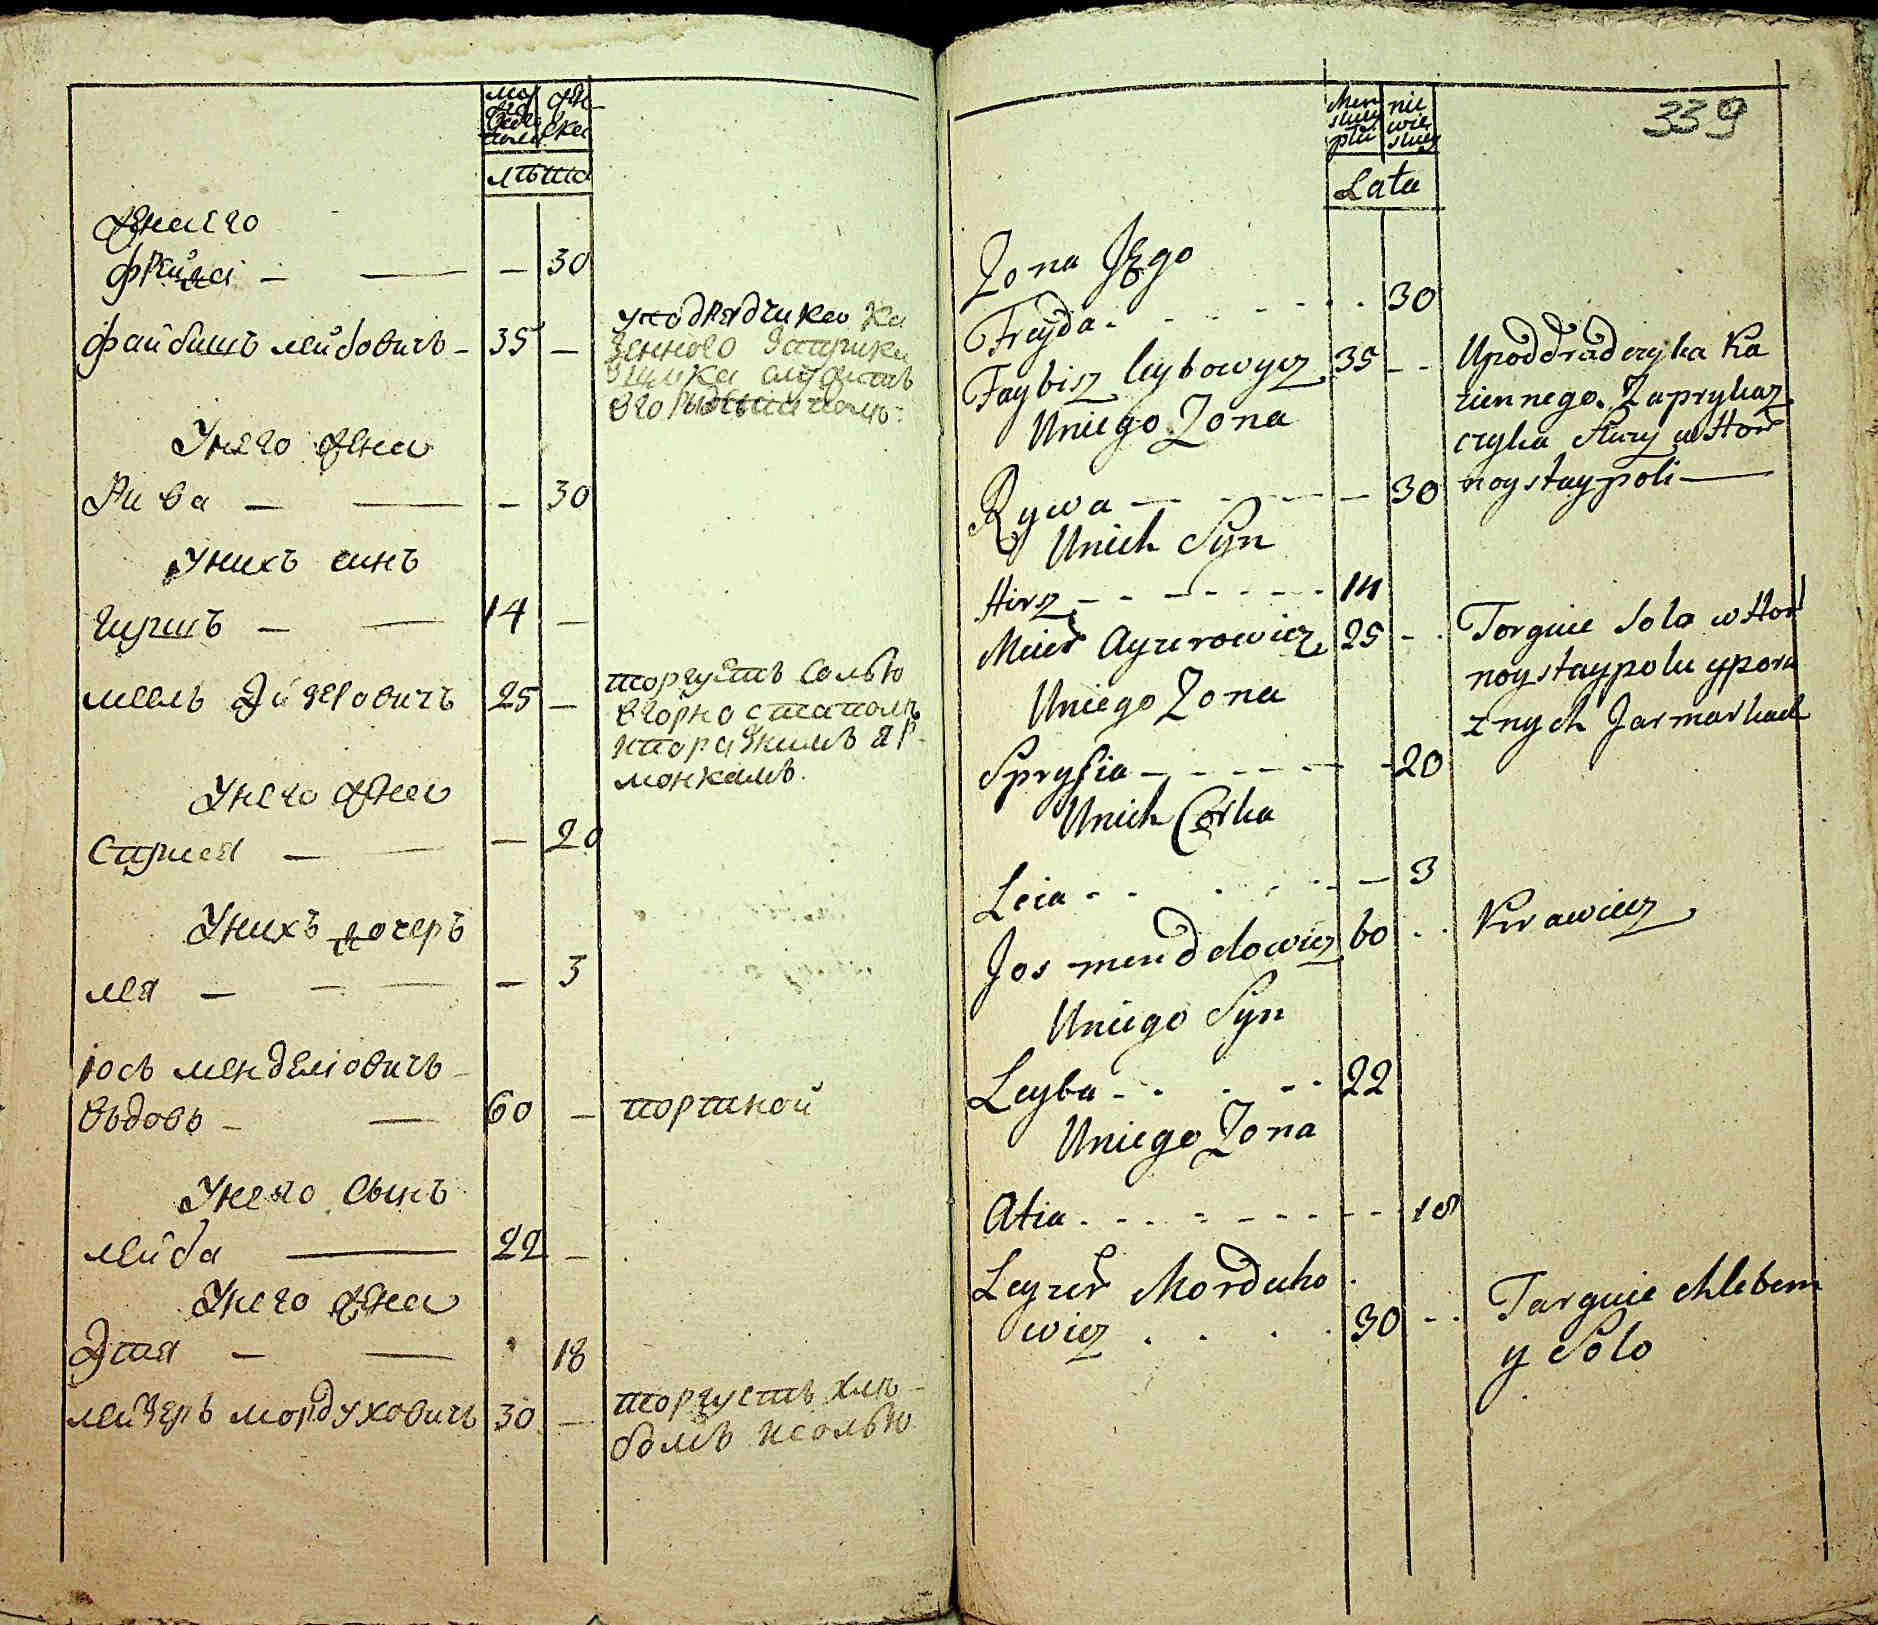 лѣта
жена его
Фрейда — — — 30
Файбишъ Лейбовичъ — 35 —
уподрядчика ка
зенного
его
У него жена
Рива — — — 30
У нихъ синъ
Гиршъ — — 14 —
Меель Эйзеровичъ 25 —
торгуетъ солью
в горностаполѣ
и поразнимъ яр-
монкамъ.
У него жена
Сприся — — — 20
У нихъ дочеръ
Лея — — — — 3
Іось Менделіовичъ
вьдовъ — — 60 — портной
У него сынъ
Лейба — 22 —
У него жена
Этя — — 18
Лейзеръ Мордуховичъ 30 —
торгуетъ хлѣ-
бомъ и солью
339
Lata
Zona Jego
Freyda - - - - 30
Faybisz Leybowycz 35 - -
Upoddradczyka Ka
ziennego. Zaprykaz
czyka Służy w Hor
noystaypoli —
Uniego Zona
Rywa — — — 30
Unich Syn
Hirsz - - - - - - 14
Meier Ayzerowicz 25 - -
Torguie Solo w Hor
noystaypolu y pora
znych Jarmarkach
Uniego Zona
Sprysia - - - - - 20
Unich Corka
Leia - - - - - 3
Jos Mendelowicz 60 - - Krawiecz
Uniego Syn
Leyba - - - - 22
Uniego Zona
Atia - - - - - - - 18
Leyzer Morducho
wicz - - - 30 - -
Targuie chlebem
y Solo